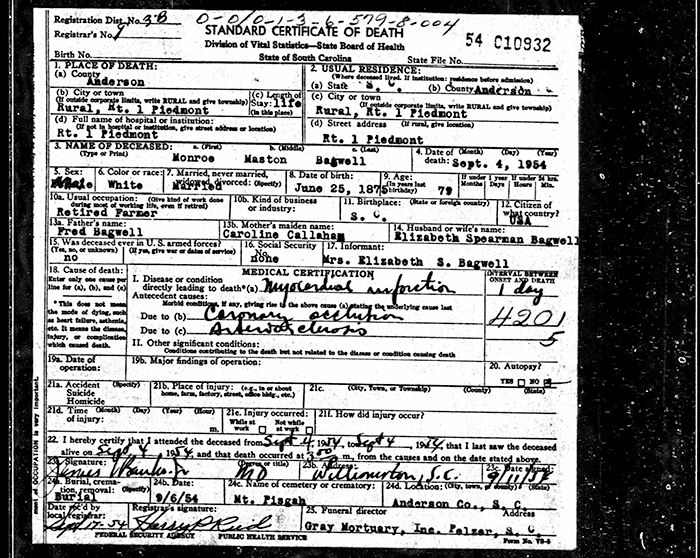 Registration Dist. No. 3B
0-0/0-1-3-6-579-8-004
Registrar's No. 9
STANDARD CERTIFICATE OF DEATH
54 010932
Division of Vital Statistics—State Board of Health
Birth No.
State of South Carolina
State File No.
1. PLACE OF DEATH:
(a) County
Anderson
2. USUAL RESIDENCE:
(Where deceased lived. If institution: residence before admission)
(a) State S. C. (b) County Anderson
(b) City or town
(If outside corporate limits, write RURAL and give township)
Rural, Rt. 1 Piedmont
(c) Length of
Stay: life
(in this place)
(c) City or town
(If outside corporate limits, write RURAL and give township)
Rural, Rt. 1 Piedmont
(d) Full name of hospital or institution:
(If not in hospital or institution, give street address or location)
Rt. 1 Piedmont
(d) Street address (If rural, give location)
Rt. 1 Piedmont
3. NAME OF DECEASED: a. (First) b. (Middle) c. (Last)
(Type or Print)
Monroe Maston Bagwell
4. Date of (Month) (Day) (Year)
death: Sept. 4, 1954
5. Sex:
Male
6. Color or race:
White
7. Married, never married,
widowed, divorced: (Specify)
Married
8. Date of birth:
June 25, 1875
9. Age:
(In years last
birthday) 79
If under 1 year
Months Days
If under 24 hrs.
Hours Min.
10a. Usual occupation: (Give kind of work done
during most of working life, even if retired)
Retired Farmer
10b. Kind of business
or industry:
11. Birthplace: (State or foreign country)
S. C.
12. Citizen of
what country?
USA
13a. Father's name:
Fred Bagwell
13b. Mother's maiden name:
Caroline Callaham
14. Husband or wife's name:
Elizabeth Spearman Bagwell
15. Was deceased ever in U. S. armed forces?
(Yes, no, or unknown) (If yes, give war or dates of service)
no
16. Social Security
No.
none
17. Informant:
Mrs. Elizabeth S. Bagwell
18. Cause of death:
Enter only one cause per
line for (a), (b), and (c)
*This does not mean
the mode of dying, such
as heart failure, asthenia,
etc. It means the disease,
injury, or complication
which caused death.
MEDICAL CERTIFICATION
I. Disease or condition
directly leading to death*(a) Myocardial infarction
Antecedent causes:
Morbid conditions, if any, giving rise to the above cause (a) stating the underlying cause last
Due to (b) Coronary occlusion
Due to (c) Arteriosclerosis
II. Other significant conditions:
Conditions contributing to the death but not related to the disease or condition causing death
INTERVAL BETWEEN
ONSET AND DEATH
1 day
4201
5
19a. Date of
operation:
19b. Major findings of operation:
20. Autopsy?
YES NO
21a. Accident (Specify)
Suicide
Homicide
21b. Place of injury: (e.g., in or about
home, farm, factory, street, office bldg., etc.)
21c. (City, Town, or Township) (County) (State)
21d. Time (Month) (Day) (Year) (Hour)
of injury: m.
21e. Injury occurred:
While at work Not while at work
21f. How did injury occur?
22. I hereby certify that I attended the deceased from Sept 4, 1954, to Sept 4, 1954, that I last saw the deceased
alive on Sept 4 1954 and that death occurred at 3:00 m, from the causes and on the date stated above.
23. Signature: (Degree or title)
MD
23b. Address:
Williamston, S.C.
23c. Date signed:
9/11/54
24a. Burial, crema-
tion, removal: (Specify)
Burial
24b. Date:
9/6/54
24c. Name of cemetery or crematory:
Mt. Pisgah
24d. Location: (City, town, or county) (State)
Anderson Co., S. C.
Date rec'd by
local registrar:
Sept 17-54
Registrar's signature:
Harry P. Reid
25. Funeral director Address
Gray Mortuary, Inc. Pelzer, S. C.
FEDERAL SECURITY AGENCY PUBLIC HEALTH SERVICE
Form No. VS-6
ment of OCCUPATION is very important.